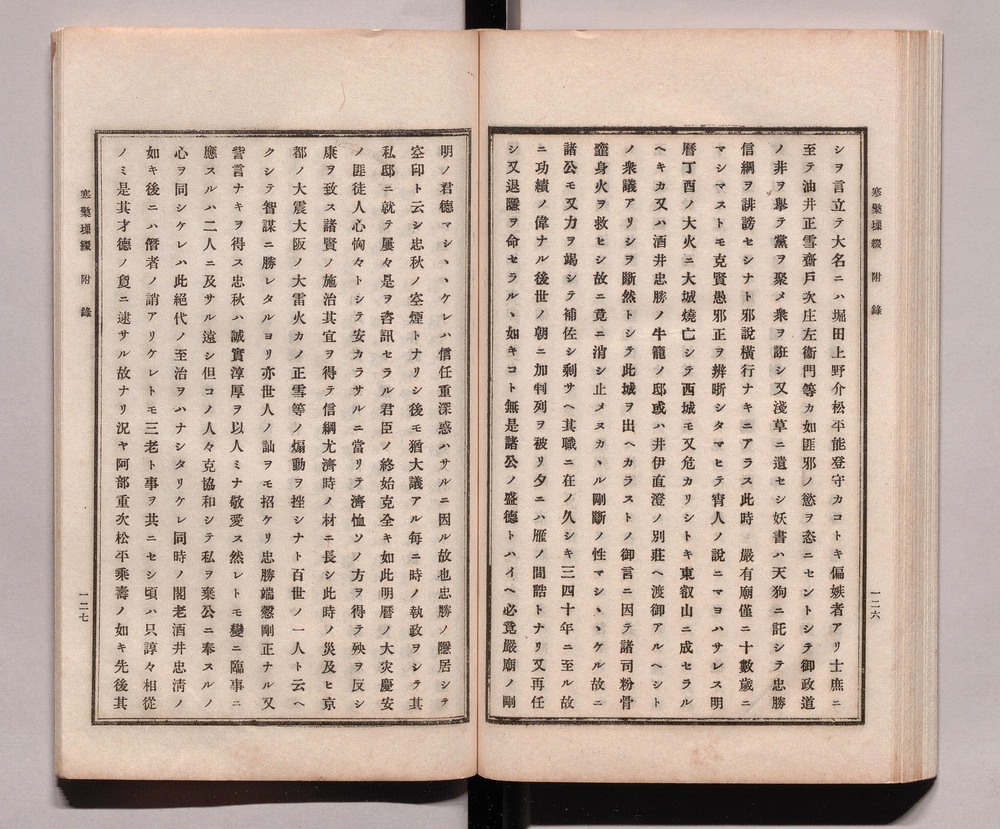 寒檠璅綴　附　錄
一二六
シヲ言立テ大名ニハ堀田上野介松平能登守カコトキ偏嫉者アリ士庶ニ
至テ油井正雪齋戶次庄左衞門等カ如匪邪ノ慾ヲ恣ニセントシテ御政道
ノ非ヲ擧テ黨ヲ聚メ衆ヲ誑シ又淺草ニ遺セシ妖書ハ天狗ニ託シテ忠勝
信綱ヲ誹謗セシナト邪說橫行ナキニアラス此時　嚴有廟僅ニ十數歲ニ
マシマストモ克賢愚邪正ヲ辨晰シタマヒテ宵人ノ說ニマヨハサレス明
曆丁酉ノ大火ニ大城燒亡シテ西城モ又危カリシトキ東叡山ニ成セラル
ヘキカ又ハ酒井忠勝ノ牛籠ノ邸或ハ井伊直澄ノ別莊ヘ渡御アルヘシト
ノ衆議アリシヲ斷然トシテ此城ヲ出ヘカラストノ御言ニ因テ諸司粉骨
齏身火ヲ救ヒシ故ニ竟ニ消シ止メヌカヽル剛斷ノ性マシヽヽケル故ニ
諸公モ又力ヲ竭シテ補佐シ剩サヘ其職ニ在ノ久シキ三四十年ニ至ル故
ニ功績ノ偉ナル後世ノ朝ニ加判列ヲ被リ夕ニハ雁ノ間詰トナリ又再任
シ又退隱ヲ命セラルヽ如キコト無是諸公ノ盛德トハイヘ必竟嚴廟ノ剛
明ノ君德マシヽヽケレハ信任重深惑ハサルニ因ル故也忠勝ノ隱居シテ
空印ト云シ忠秋ノ空煙トナリシ後モ猶大議アル每ニ時ノ執政ヲシテ其
私邸ニ就テ屢々是ヲ咨訊セラル君臣ノ終始克全キ如此明曆ノ大灾慶安
ノ匪徒人心恟々トシテ安カラサルニ當リテ濟恤ソノ方ヲ得テ殃ヲ反シ
康ヲ致ス諸賢ノ施治其宜ヲ得テ信綱尤濟時ノ材ニ長シ此時ノ災及ヒ京
都ノ大震大阪ノ大雷火カノ正雪等ノ煽動ヲ挫シナト百世ノ一人ト云ヘ
クシテ智謀ニ勝レタルヨリ亦世人ノ訕ヲモ招ケリ忠勝端愨剛正ナル又
訾言ナキヲ得ス忠秋ハ誠實淳厚ヲ以人ミナ敬愛ス然レトモ變ニ臨事ニ
應スルハ二人ニ及サル遠シ但コノ人々克協和シテ私ヲ棄公ニ奉スルノ
心ヲ同シケレハ此絕代ノ至治ヲハナシタリケレ同時ノ閣老酒井忠淸ノ
如キ後ニハ僭者ノ誚アリケレトモ三老ト事ヲ其ニセシ頃ハ只諄々相從
ノミ是其才德ノ負ニ逮サル故ナリ況ヤ阿部重次松平乘壽ノ如キ先後其
寒檠璅綴　附　錄
一二七